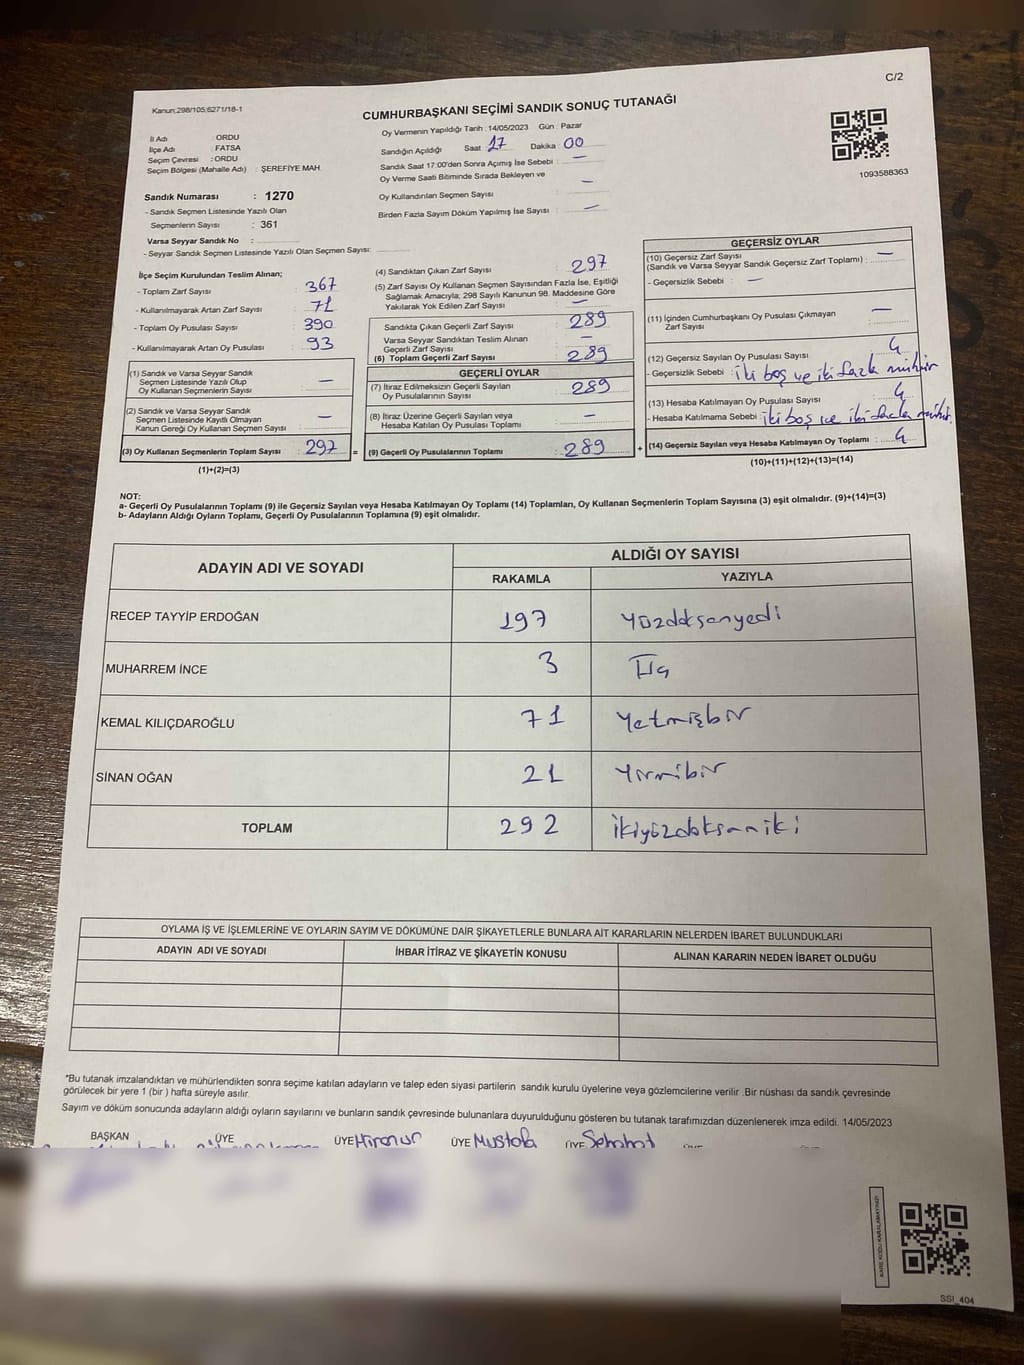 C/2
Kanun:298/105;6271/18-1
CUMHURBAŞKANI SEÇİMİ SANDIK SONUÇ TUTANAĞI
İl Adı : ORDU
İlçe Adı : FATSA
Seçim Çevresi : ORDU
Seçim Bölgesi (Mahalle Adı) : ŞEREFİYE MAH.
Oy Vermenin Yapıldığı Tarih : 14/05/2023 Gün : Pazar
Sandığın Açıldığı Saat 17 Dakika : 00
Sandık Saat 17:00'den Sonra Açımış İse Sebebi : —
Oy Verme Saati Bitiminde Sırada Bekleyen ve
Oy Kullandırılan Seçmen Sayısı : —
Birden Fazla Sayım Döküm Yapılmış İse Sayısı : —
1093588363
Sandık Numarası : 1270
- Sandık Seçmen Listesinde Yazılı Olan
Seçmenlerin Sayısı : 361
Varsa Seyyar Sandık No :
- Seyyar Sandık Seçmen Listesinde Yazılı Olan Seçmen Sayısı:
İlçe Seçim Kurulundan Teslim Alınan;
- Toplam Zarf Sayısı : 367
- Kullanılmayarak Artan Zarf Sayısı : 71
- Toplam Oy Pusulası Sayısı : 390
- Kullanılmayarak Artan Oy Pusulası : 93
(1) Sandık ve Varsa Seyyar Sandık
Seçmen Listesinde Yazılı Olup
Oy Kullanan Seçmenlerin Sayısı —
(2) Sandık ve Varsa Seyyar Sandık
Seçmen Listesinde Kayıtlı Olmayan
Kanun Gereği Oy Kullanan Seçmen Sayısı —
(3) Oy Kullanan Seçmenlerin Toplam Sayısı : 297 =
(1)+(2)=(3)
(4) Sandıktan Çıkan Zarf Sayısı : 297
(5) Zarf Sayısı Oy Kullanan Seçmen Sayısından Fazla İse, Eşitliği
Sağlamak Amacıyla; 298 Sayılı Kanunun 98. Maddesine Göre
Yakılarak Yok Edilen Zarf Sayısı : —
Sandıkta Çıkan Geçerli Zarf Sayısı : 289
Varsa Seyyar Sandıktan Teslim Alınan
Geçerli Zarf Sayısı —
(6) Toplam Geçerli Zarf Sayısı : 289
GEÇERLİ OYLAR
(7) İtiraz Edilmeksizin Geçerli Sayılan
Oy Pusulalarının Sayısı : 289
(8) İtiraz Üzerine Geçerli Sayılan veya
Hesaba Katılan Oy Pusulası Toplamı : —
(9) Geçerli Oy Pusulalarının Toplamı : 289 +
GEÇERSİZ OYLAR
(10) Geçersiz Zarf Sayısı
(Sandık ve Varsa Seyyar Sandık Geçersiz Zarf Toplamı) : —
- Geçersizlik Sebebi : —
(11) İçinden Cumhurbaşkanı Oy Pusulası Çıkmayan
Zarf Sayısı : —
(12) Geçersiz Sayılan Oy Pusulası Sayısı : 4
- Geçersizlik Sebebi : iki boş ve iki fazla mühür
(13) Hesaba Katılmayan Oy Pusulası Sayısı : 4
- Hesaba Katılmama Sebebi : iki boş ve iki fazla mühür
(14) Geçersiz Sayılan veya Hesaba Katılmayan Oy Toplamı : 4
(10)+(11)+(12)+(13)=(14)
NOT:
a- Geçerli Oy Pusulalarının Toplamı (9) ile Geçersiz Sayılan veya Hesaba Katılmayan Oy Toplamı (14) Toplamları, Oy Kullanan Seçmenlerin Toplam Sayısına (3) eşit olmalıdır. (9)+(14)=(3)
b- Adayların Aldığı Oyların Toplamı, Geçerli Oy Pusulalarının Toplamına (9) eşit olmalıdır.
ADAYIN ADI VE SOYADI
ALDIĞI OY SAYISI
RAKAMLA YAZIYLA
RECEP TAYYİP ERDOĞAN 197 Yüzdoksanyedi
MUHARREM İNCE 3 Üç
KEMAL KILIÇDAROĞLU 71 Yetmişbir
SİNAN OĞAN 21 Yirmibir
TOPLAM 292 ikiyüzdoksaniki
OYLAMA İŞ VE İŞLEMLERİNE VE OYLARIN SAYIM VE DÖKÜMÜNE DAİR ŞİKAYETLERLE BUNLARA AİT KARARLARIN NELERDEN İBARET BULUNDUKLARI
ADAYIN ADI VE SOYADI İHBAR İTİRAZ VE ŞİKAYETİN KONUSU ALINAN KARARIN NEDEN İBARET OLDUĞU
*Bu tutanak imzalandıktan ve mühürlendikten sonra seçime katılan adayların ve talep eden siyasi partilerin sandık kurulu üyelerine veya gözlemcilerine verilir .Bir nüshası da sandık çevresinde
görülecek bir yere 1 (bir ) hafta süreyle asılır.
Sayım ve döküm sonucunda adayların aldığı oyların sayılarını ve bunların sandık çevresinde bulunanlara duyurulduğunu gösteren bu tutanak tarafımızdan düzenlenerek imza edildi. 14/05/2023
BAŞKAN ÜYE ÜYE Hiranur ÜYE Mustafa ÜYE Sebahat
KARE KODU KARALAMAYINIZ!
SSI_404